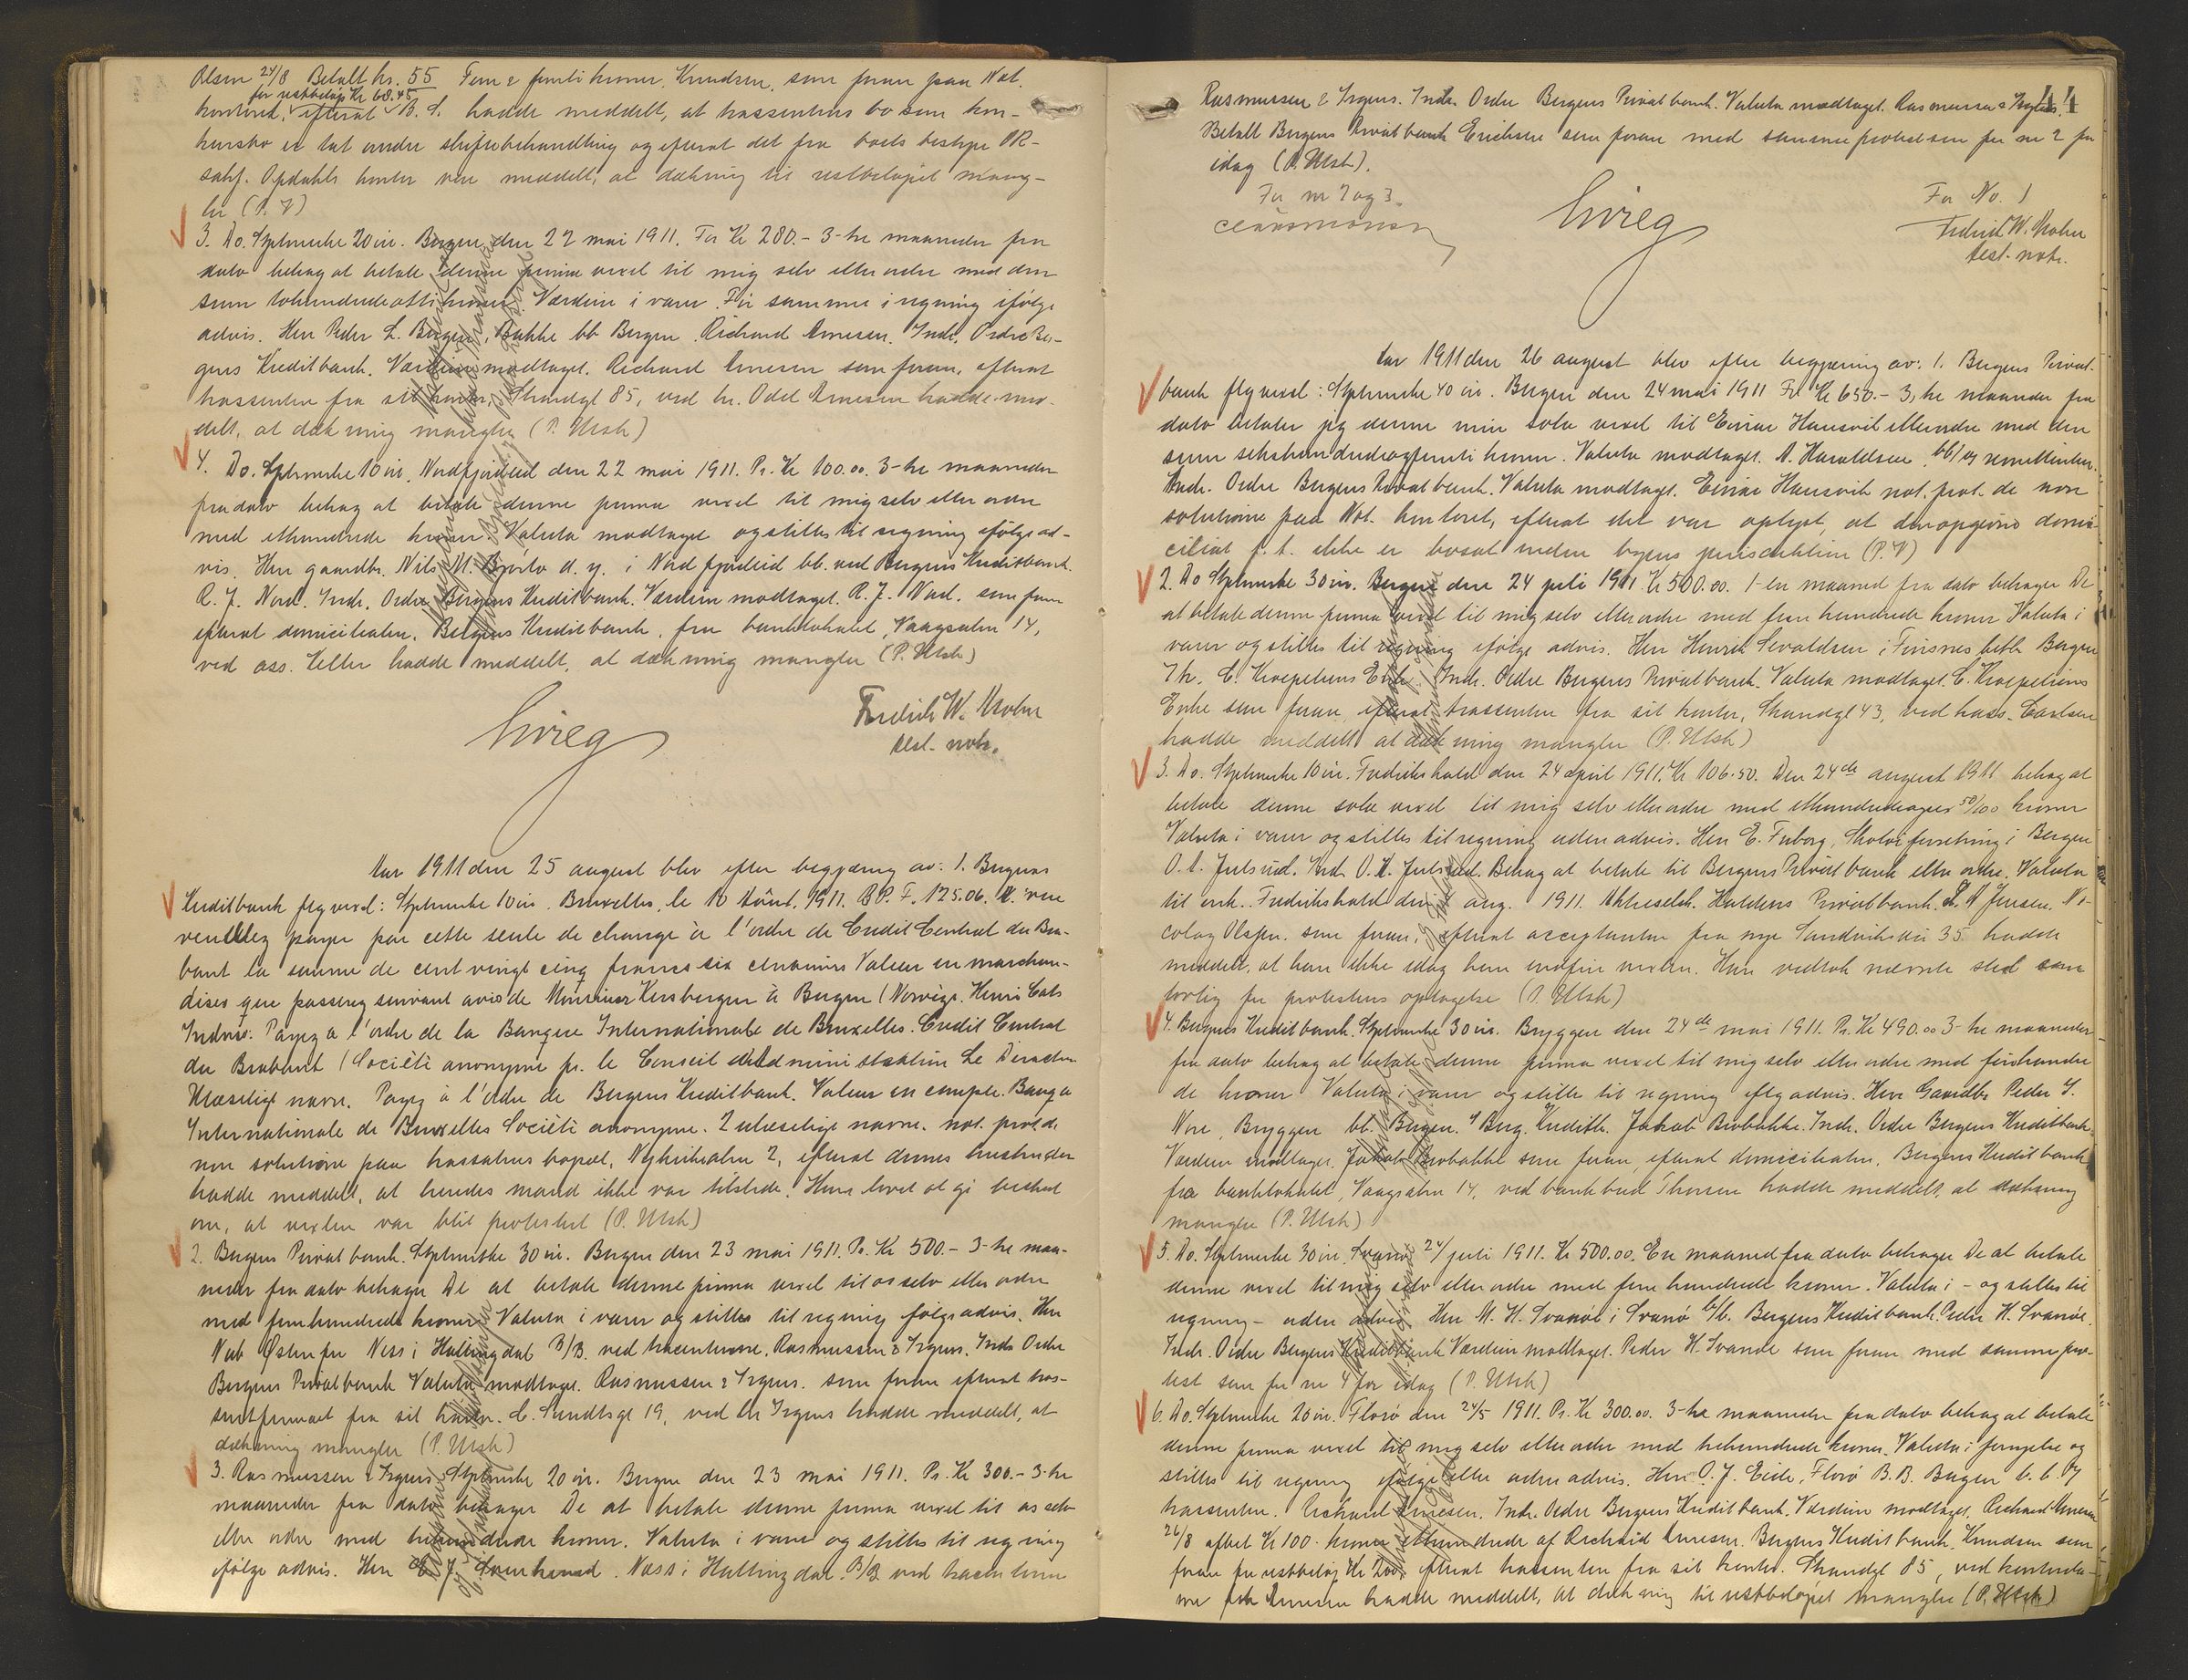 Olsen 24/8 Betalt kr. 55 Fem & femti kroner. Knudsen, som foran paa Not.
for restbeløp Kr 68.45
kontoret, efterat B. S. hadde meddelt, at trassentens bo som kon-
kursbo er tat under skiftebehandling og efterat det fra boets bestyrer OR-
sakf. Opdahls kontor var meddelt, at dækning til restbeløpet mang-
ler (P. V)
3. Do. Stplmerke 20 øre. Bergen den 22 mai 1911. For Kr 280.- 3-tre maaneder fra
dato behag at betale denne prima vexel til mig selv eller ordre med den
sum tohundredeotti kroner. Værdien i varer. Før samme i regning ifølge
advis. Herr Peder L. Bergen, Bakke bb Bergen. Richard Arnesen. Indr. Ordre Ber-
gens Kreditbank. Værdien modtaget. Richard Arnesen som foran, efterat
trassenten fra sit kontor, Strandgt 85, ved hr. Odd Arnesen hadde med-
delt, at dækning mangler (P. Utsk)
4. Do. Stplmerke 10 øre, Nordfjordeid den 22 mai 1911. Pr. Kr 100.00. 3-tre maaneder
fra dato behag at betale denne prima vexel til mig selv eller ordre
med ethundrede kroner. Valuta modtaget og stilles til regning ifølge ad-
vis. Herr gaardbr. Nils M. d. y. i Nordfjordeid bb. ved Bergens Kreditbank.
R. J. Nord. Indr. Ordre Bergens Kreditbank. Værdien modtaget. R. J. Nord. som foran
efterat domiciliaten, Bergens Kreditbank, fra banklokalet, Vaagsalm 14,
ved ass. Keller hadde meddelt, at dækning mangler (P. Utsk)
Fredrik W. Mohn
test. notr.
Aar 1911 den 25 august blev efter begjæring av: 1. Bergens
Kreditbank flg vexel: Stplmerke 10 øre. Bruxelles, le 10 Août. 1911. B.P. F. 125.06. A vue
veuillez payer par cette seule de change à l'ordre de Credit Central du Bra-
bant la somme de cent vingt cinq francs six centimes Valeur en marchan-
dises que passerez suivant avis de Monsieur Kersbergen à Bergen (Norvège. Henri Cats
Indvis: Payez a l'ordre de la Banque Internationale de Bruxelles. Credit Central
du Brabant (Société anonyme pr. le Conseil d'administration Le Directeur
Ulæselig navn. Payez à l'ordre de Bergens Kreditbank. Valeur en compte. Banque
Internationale de Bruxelles Société anonyme. 2 ulæselige navne. not. prot. de
non solutione paa trassatens bopæl, Nykirkealm 2, efterat dennes hustru der
hadde meddelt, at hendes mand ikke var tilstede. Hun lovet at gi beskeed
om, at vexlen var blit protestert (P. Utsk)
2. Bergens Privatbank. Stplmerke 30 øre. Bergen den 23 mai 1911. Pr. Kr 500.- 3-tre maa-
neder fra dato behager De at betale denne prima vexel til os selv eller ordre
med femhundrede kroner. Valuta i varer og stilles til regning følge advis. Herr
Nub Østenfor Ness i Hallingdal B/B. ved trassenterne. Rasmussen & Irgens. Indr. Ordre
Bergens Privatbank Valuta modtaget. Rasmussen & Irgens. som foran efterat tras-
sentfirmaet fra sit kontor. C. Sundtsgt 19, ved hr Irgens hadde meddelt, at
dækning mangler (P. Utsk)
3. Rasmussen & Irgens. Stplmerke 20 øre. Bergen den 23 mai 1911. Pr. Kr 300.- 3-tre
maaneder fra dato behager De at betale denne prima vexel til os selv
eller ordre med trehundrede kroner. Valuta i varer og stilles til regning
ifølge advis. Herr Næss i Hallingdal. B/B ved trassenterne
44
Rasmussen & Irgens. Indr. Ordre Bergens Privatbank. Valuta modtaget. Rasmussen & Irgens.
Betalt Bergens Privatbank Erichsen som foran med samme protest som for nr 2 for
idag (P. Utsk).
For nr 2 og 3.
For No. 1
Fredrik W. Mohn
test. notr.
Aar 1911 den 26 august blev efter begjæring av: 1. Bergens Privat-
bank flg vexel: Stplmerke 40 øre. Bergen den 24 mai 1911 For Kr 650.- 3, tre maaneder fra
dato betaler jeg denne min sola vexel til Einar Hansvik eller ordre med den
sum sekshundredeogfemti kroner. Valuta modtaget. A. Haraldsen. bb/ og remittenten.
Indr. Ordre Bergens Privatbank. Valuta modtaget. Einar Hansvik not. prot. de non
solutione paa Not. kontoret, efterat det var oplyst, at den opgivne domi-
ciliat p.t. ikke er bosat inden byens jurisdiktion (P. V)
2. Do Stplmerke 30 øre. Bergen den 24 juli 1911 Kr 500.00. 1-en maaned fra dato behager De
at betale denne prima vexel til mig selv eller ordre med fem hundrede kroner Valuta i
varer og stilles til regning ifølge advis. Herr Henrik Sevaldsen i Finsnes betb. Bergen
Th. C. Kroepeliens Enke. Indr. Ordre Bergens Privatbank. Valuta modtaget. C. Kroepeliens
Enke som foran, efterat trassenten fra sit kontor, Strandgt 43, ved kass. Carlsen
hadde meddelt at dækning mangler (P. Utsk)
3. Do. Stplmerke 10 øre. Fredrikshald den 24 april 1911. Kr 106.50. Den 24de august 1911 behag at
betale denne sola vexel til mig selv eller ordre med ethundredeogsex 50/100 kroner
Valuta i varer og stilles til regning uden advis. Herr E. Friborg, Skotøiforretning i Bergen
O. A. Julsrud. Indr. O. A. Julsrud. Behag at betale til Bergens Privatbank eller ordre. Valuta
til ink. Fredrikshald den aug. 1911. Aktieselsk. Haldens Privatbank. A Jensen. Ni-
colay Olsen. som foran, efterat acceptanten fra nye Sandviksvei 35 hadde
meddelt, at han ikke idag kan indfri vexlen. Han vedtok nævnte sted som
lovlig for protestens optagelse (P. Utsk)
4. Bergens Kreditbank. Stplmerke 30 øre. Bryggen den 24de mai 1911. Pr. Kr 490.00 3-tre maaneder
fra dato behag at betale denne prima vexel til mig selv eller ordre med firehundre
de kroner Valuta i varer og stilles til regning iflg advis. Herr Gaardbr. Peder S.
Nore, Bryggen bb. Bergen. Berg. Kreditb. Jakob Brobakke. Indr. Ordre Bergens Kreditbank.
Værdien modtaget. Jakob Brobakke som foran, efterat domiciliaten, Bergens Kreditbank
fra banklokalet, Vaagsalm 14, ved bankbud Thorsen hadde meddelt, at dækning
mangler (P. Utsk)
5. Do. Stplmerke 30 øre. Svanø 24/ juli 1911. Kr 500.00. En maaned fra dato behager De at betale
denne vexel til mig selv eller ordre med fem hundrede kroner. Valuta i - og stilles til
regning - uden advis. Herr M. H. Svanøe i Svanø b/b. Bergens Kreditbank. Peder H. Svanøe.
Indr. Ordre Bergens Kreditbank Værdien modtaget. Peder H. Svanøe som foran med samme pro-
test som for nr 4 for idag (P. Utsk)
6. Do. Stplmerke 20 øre. Florø den 24/5 1911. Pr. Kr 300.00. 3-tre maaneder fra dato behag at betale
denne prima vexel til mig selv eller ordre med trehundrede kroner. Valuta i fornyelse og
stilles til regning ifølge eller uden advis. Herr O. J. Eide, Florø B. B. Bergen b. b. og
trassenten. Richard Arnesen. Indr. Ordre Bergens Kreditbank. Værdien modtaget. Richard Arnesen
24/8 afbet Kr 100. kroner ethundrede af Richard Arnesen. Bergens Kreditbank. Knudsen som
foran for restbeløp Kr 200, efterat trassenten fra sit kontor. Strandgt 85, ved kontorda-
me frk Arnesen hadde meddelt, at dækning til restbeløpet mangler (P. Utsk)